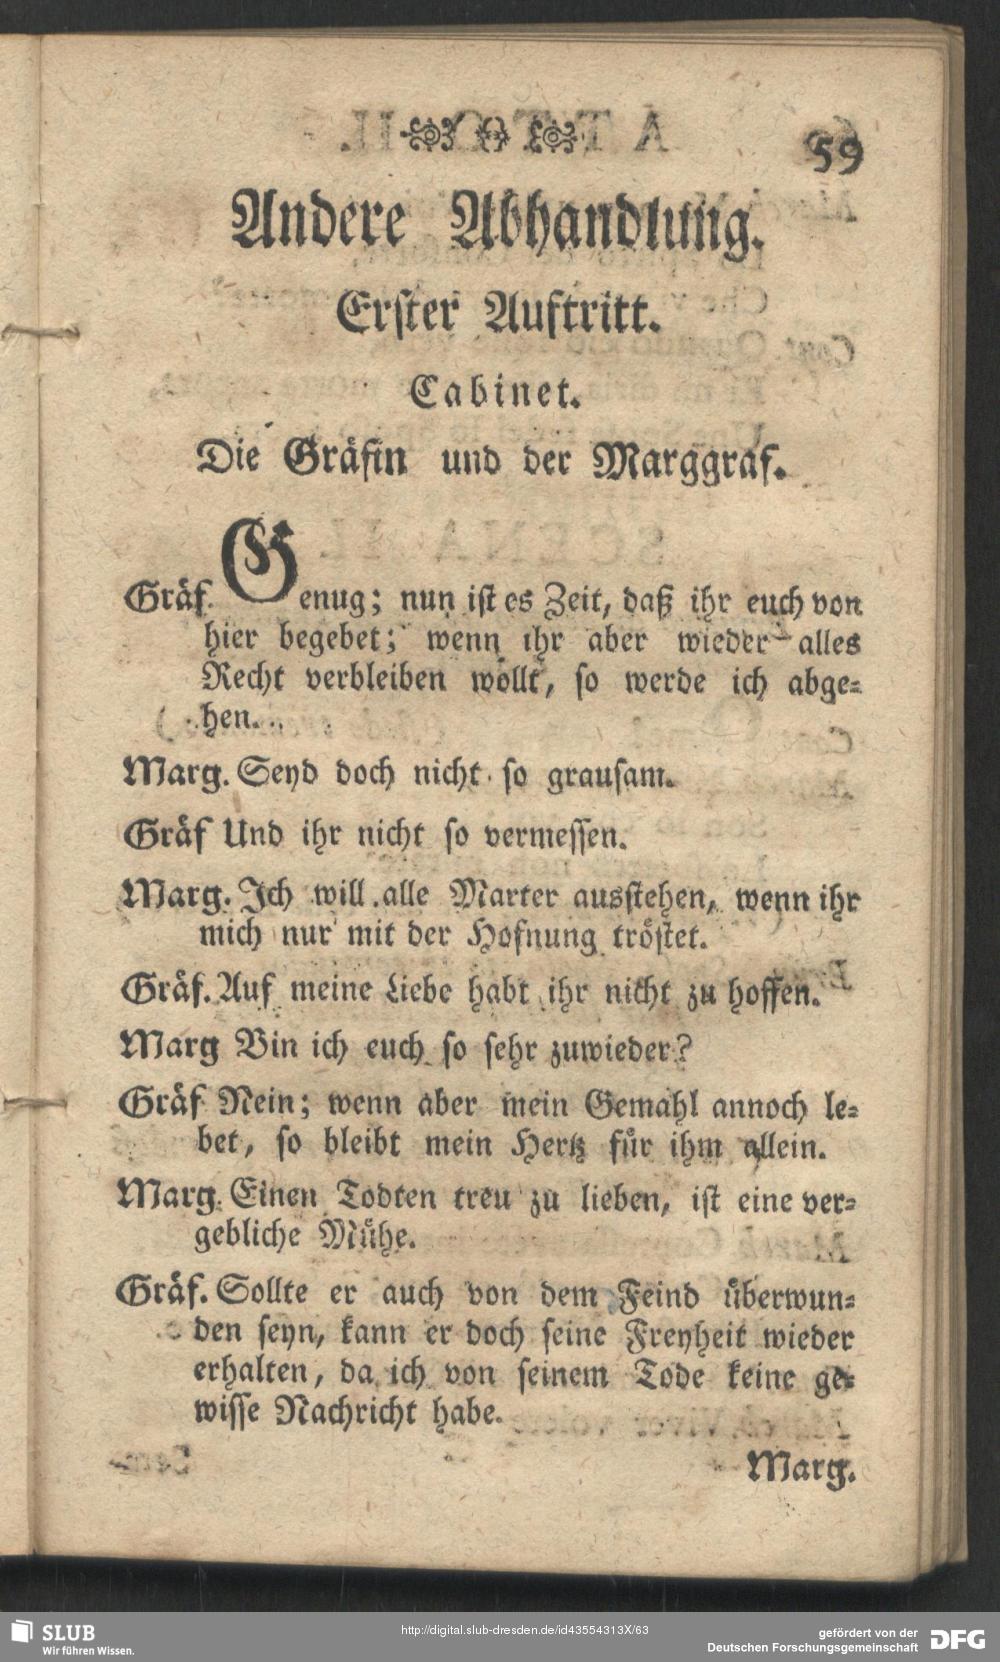 59
Andere Abhandlung.
Erster Auftritt.
Cabinet.
Die Gräfin und der Marggraf.
Gräf. Genug; nun ist es Zeit, daß ihr euch von
hier begebet; wenn ihr aber wieder alles
Recht verbleiben wollt, so werde ich abge-
hen.
Marg. Seyd doch nicht so grausam.
Gräf Und ihr nicht so vermessen.
Marg. Ich will alle Marter ausstehen, wenn ihr
mich nur mit der Hofnung tröstet.
Gräf. Auf meine Liebe habt ihr nicht zu hoffen.
Marg Bin ich euch so sehr zuwieder?
Gräf Nein; wenn aber mein Gemahl annoch le-
bet, so bleibt mein Hertz für ihm allein.
Marg. Einen Todten treu zu lieben, ist eine ver-
gebliche Mühe.
Gräf. Sollte er auch von dem Feind überwun-
den seyn, kann er doch seine Freyheit wieder
erhalten, da ich von seinem Tode keine ge-
wisse Nachricht habe.
Marg.
SLUB
Wir führen Wissen.
http://digital.slub-dresden.de/id43554313X/63
gefördert von der
Deutschen Forschungsgemeinschaft
DFG